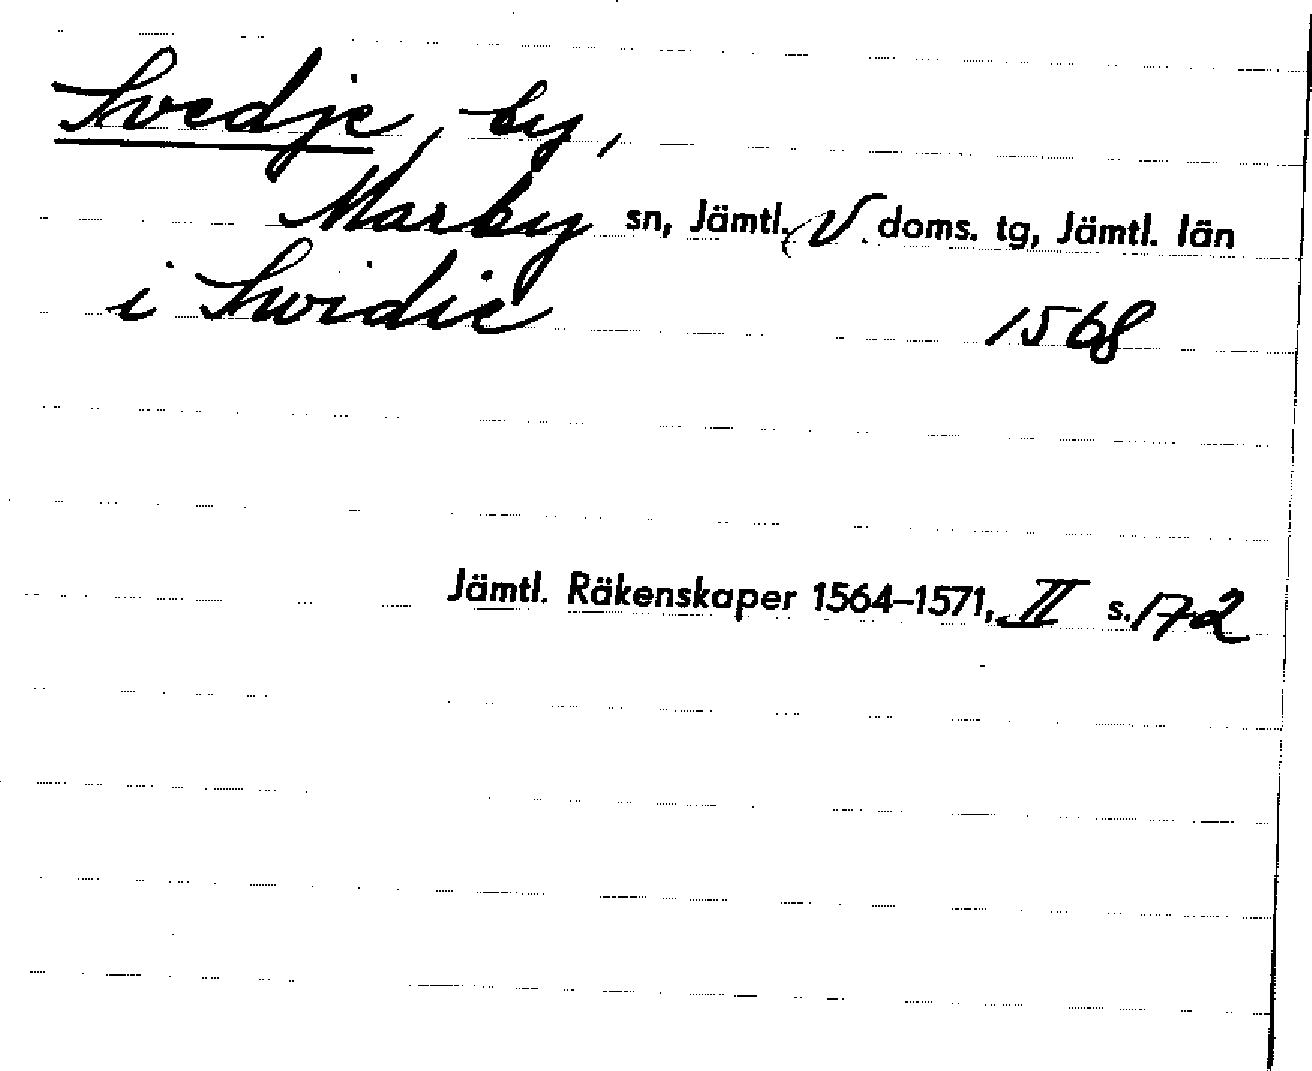 Svedje, by,
Marby sn, Jämtl. V. doms. tg, Jämtl. län
i Swidie 1568
Jämtl. Räkenskaper 1564–1571, II s. 172